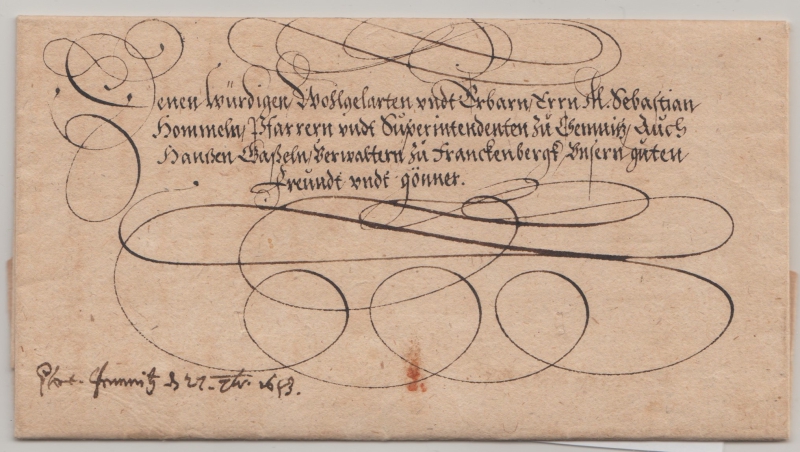 Denen Würdigen Wohlgelarten vndt Erbarn, Errn M. Sebastian
Hommeln, Pfarrern vndt Superintendenten zü Chemnitz, Auch
Hanßen Gaßeln, Verwaltern zü Franckenbergk, Vnsern güten
Freundt vndt gönner.
Chemnitz d 1653.